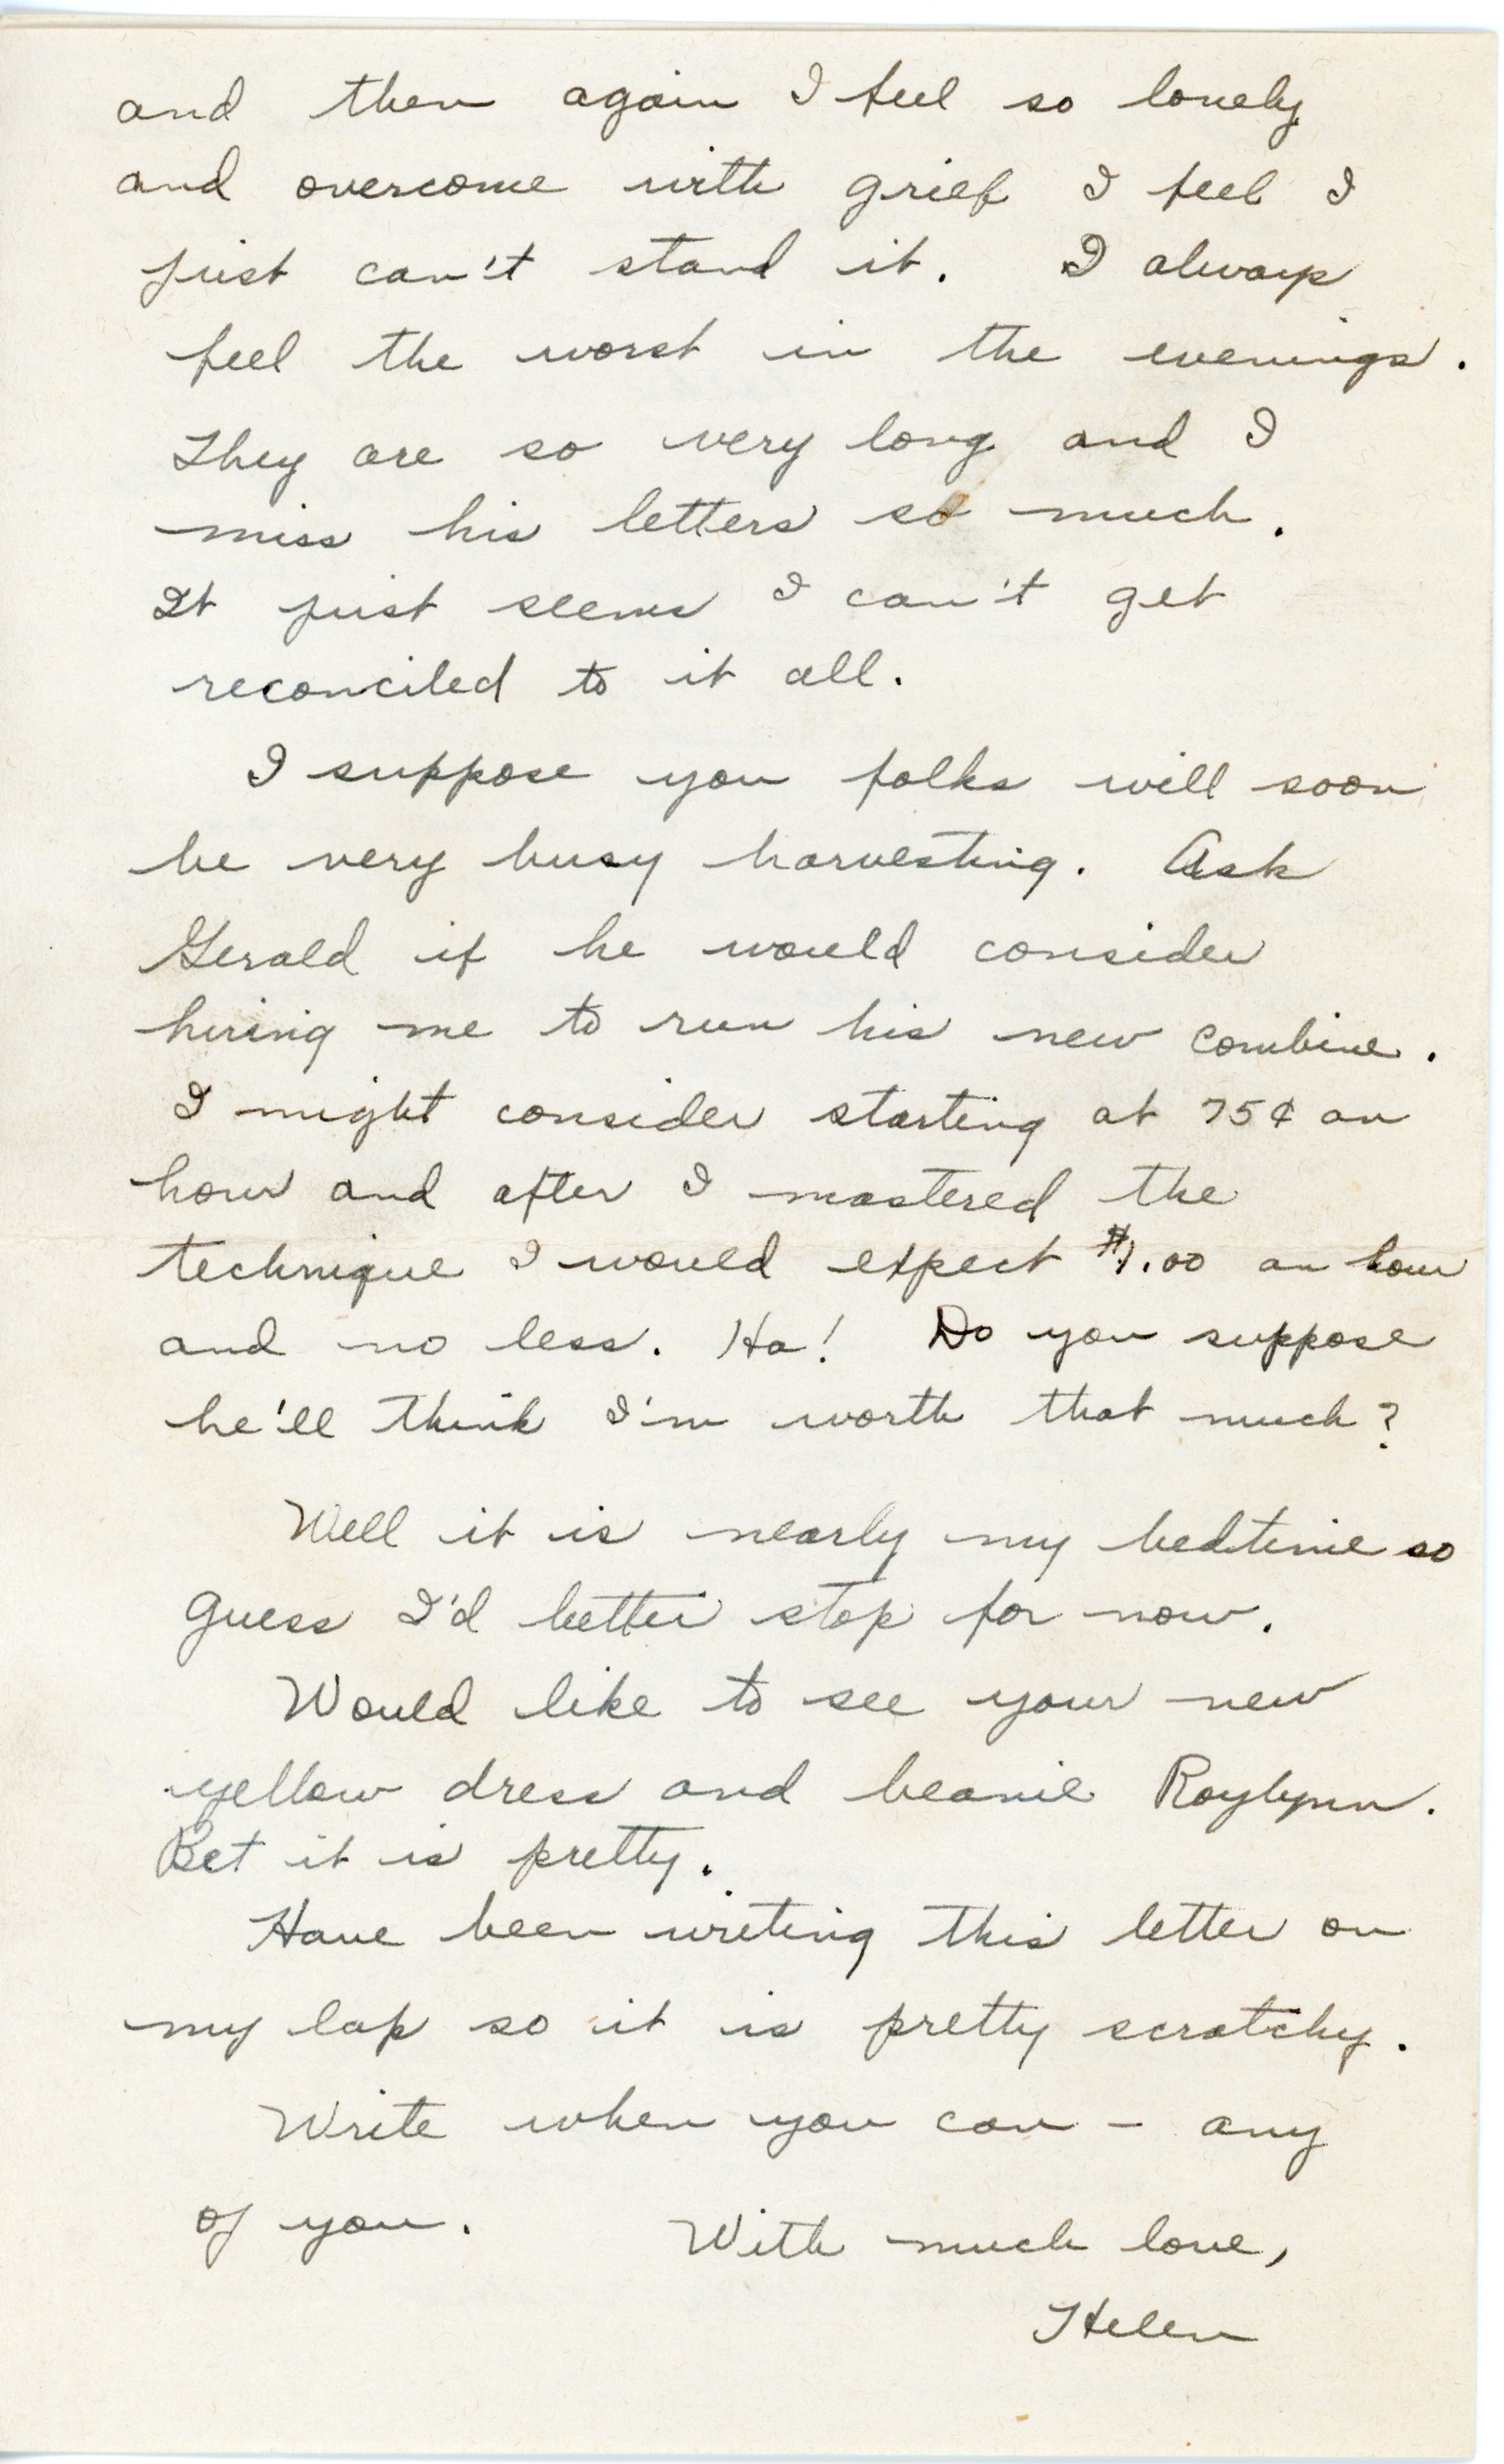 and then again I feel so lonely
and overcome with grief I feel I
just can't stand it. I always
feel the worst in the evenings.
They are so very long and I
miss his letters so much.
It just seems I can't get
reconciled to it all.
I suppose you folks will soon
be very busy harvesting. Ask
Gerald if he would consider
hiring me to run his new combine.
I might consider starting at 75¢ an
hour and after I mastered the
technique I would expect $1.00 an hour
and no less. Ha! Do you suppose
he'll think I'm worth that much?
Well it is nearly my bedtime so
guess I'd better stop for now.
Would like to see your new
yellow dress and beanie Roylynn.
Bet it is pretty.
Have been writing this letter on
my lap so it is pretty scratchy.
Write when you can - any
of you.
With much love,
Helen